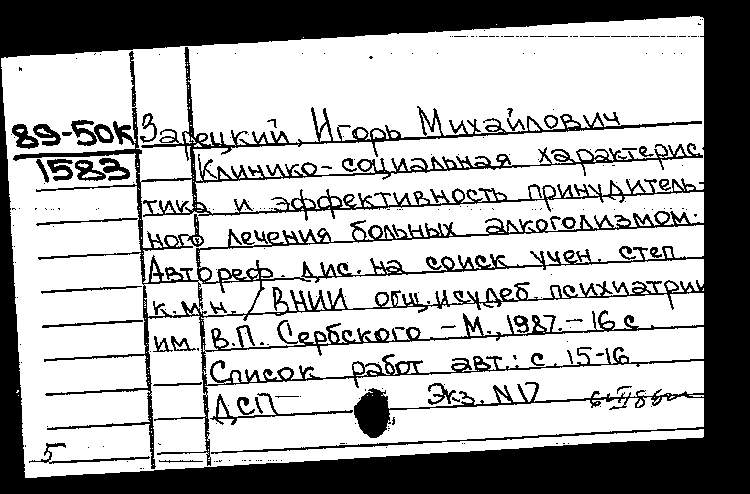 89-50К Зарецкий, Игорь Михайлович
1583 Клинико-социальная характерис-
тика и эффективность принудитель-
ного лечения больных алкоголизмом:
Автореф. дис. на соиск учен. степ
к.м.н. / ВНИИ общ. и судеб. психиатрии
им. В.П. Сербского. - М., 1987. - 16 с.
Список работ авт.: с. 15-16.
ДСП Экз. N 17
5